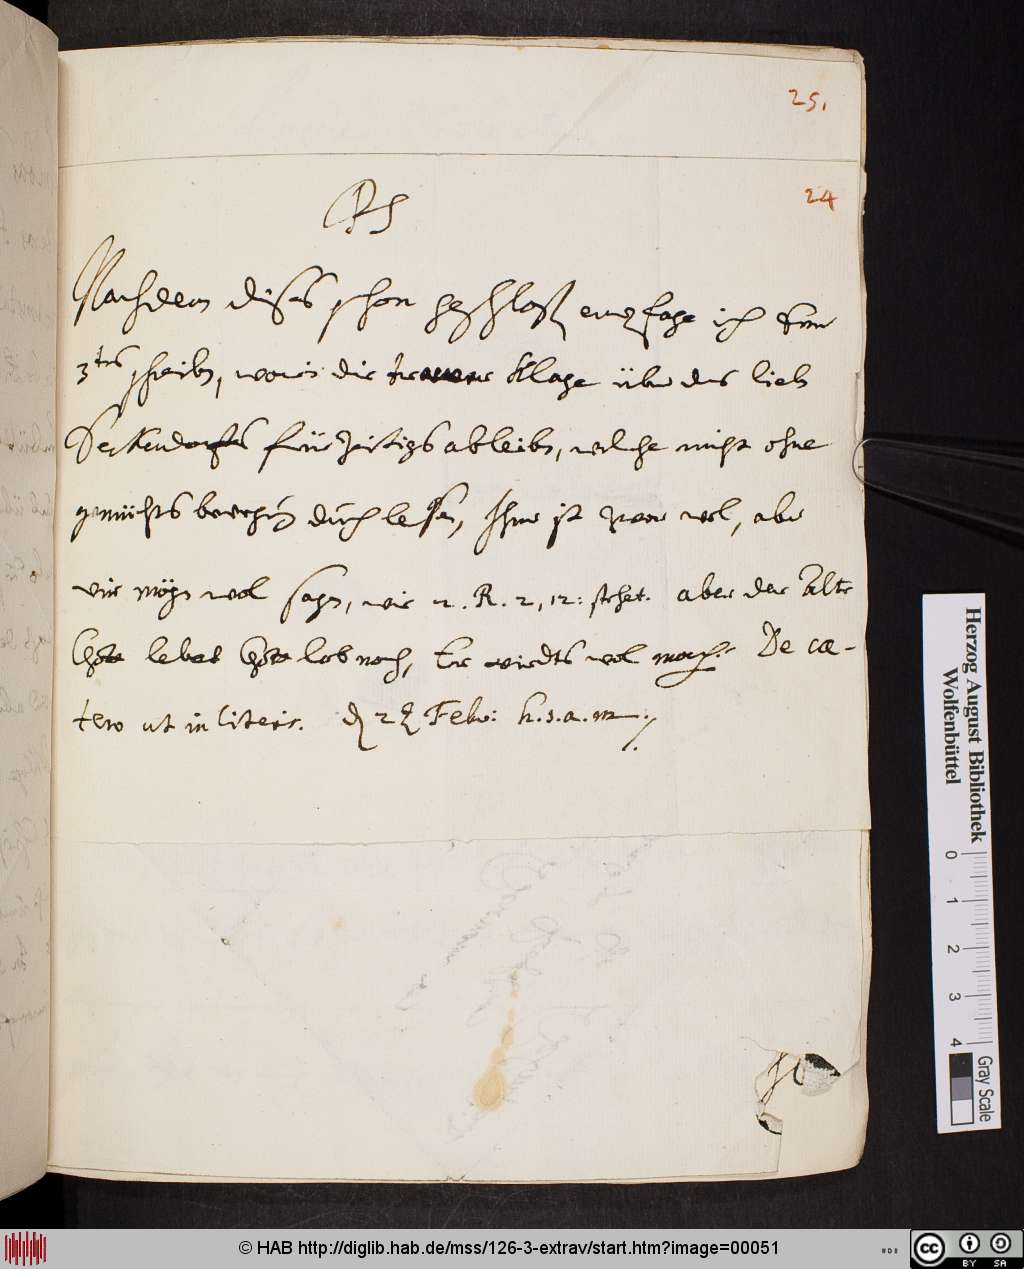 25.
24
PS
Nachdem dises schon geschloßen, empfahe ich Sein
3tes schreiben, worin die trauer Klage über des lieben
Seckendorffs früezeitiges ableiben, welche nicht ohne
gemüths bewegung durchlesen, Ihme ist zwar wol, aber
wir mögen wol sagen, wie 2. R. 2, 12: stehet. aber der Alte
Gott lebet Gott lob noch, Er wirdts wol machen. De cæ-
tero ut in literis. d. 28 Febr: h.s.a.m.
Herzog August Bibliothek
Wolfenbüttel
0 1 2 3 4
Gray Scale
© HAB http://diglib.hab.de/mss/126-3-extrav/start.htm?image=00051
cc BY SA